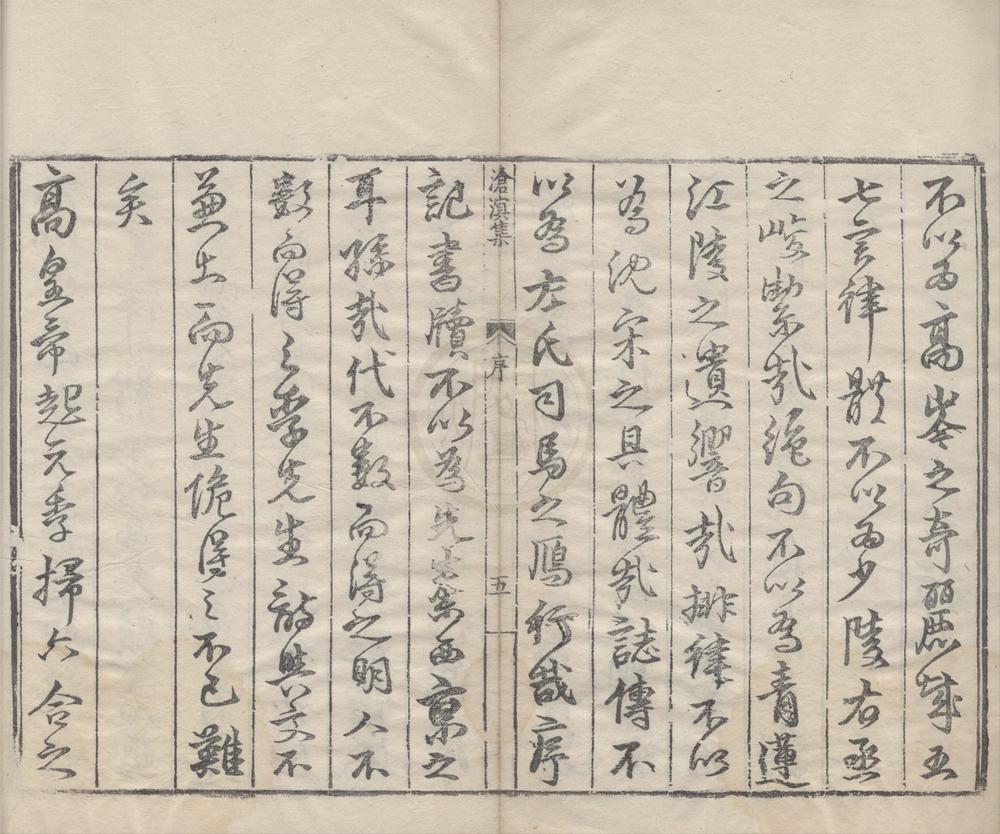 不以為高岑之奇麗哉五
七言律體不以為少陵右丞
之峻絜哉絕句不以為青蓮
江陵之遺響哉排律不以
為沈宋之具體哉誌傳不
以為左氏司馬之鴈行哉序
滄溟集
序
五
記書牘不以為先秦西京之
耳孫哉代不數而得之明人不
數而得之李先生詩與文不
兼士一而先生詭得之不已難
矣
高皇帝起元季掃六合之